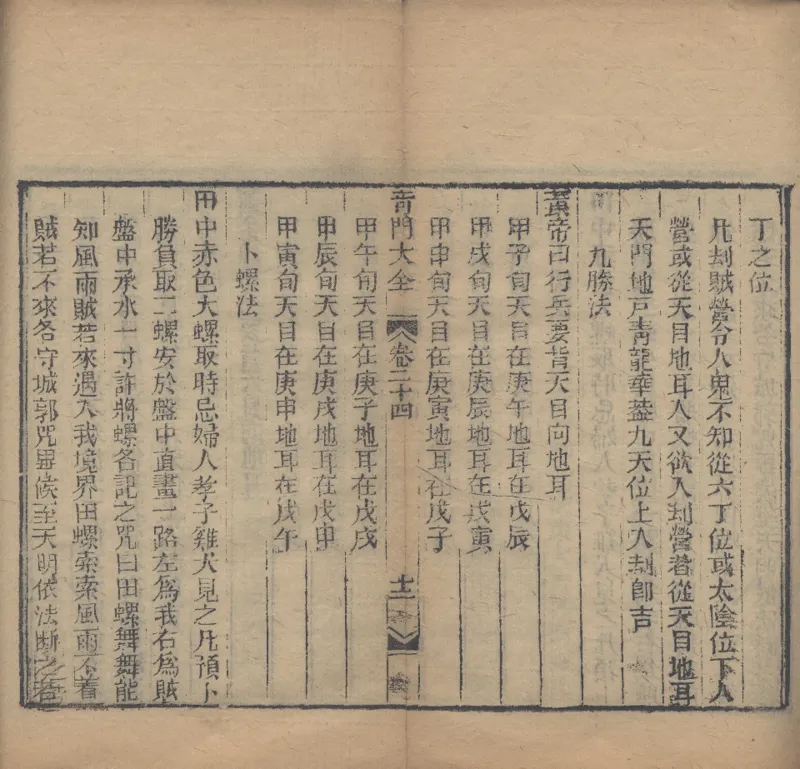 丁之位
凡刦賊營令人鬼不知從六丁位或太陰位下入
營或從天目地耳入又欲入刦營者從天目地耳
天門地戸青龍華葢九天位上入刦即吉
九勝法
黃帝曰行兵要背天目向地耳
甲子旬天目在庚午地耳在戊辰
甲戌旬天目在庚辰地耳在戊寅
甲申旬天目在庚寅地耳在戊子
奇門大全
卷二十四
十二
甲午旬天目在庚子地耳在戊戌
甲辰旬天目在庚戌地耳在戊申
甲寅旬天目在庚申地耳在戊午
卜螺法
田中赤色大螺取時忌婦人孝子雞犬見之凡預卜
勝負取二螺安於盤中直畫一路左爲我右爲賊
盤中承水一寸許將螺各記之咒曰田螺舞舞能
知風雨賊若來過入我境界田螺索索風雨不着
賊若不來各守城郭咒畢候至天明依法斷之若